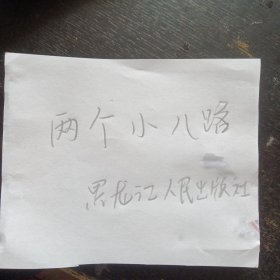 两个小八路
黑龙江人民出版社